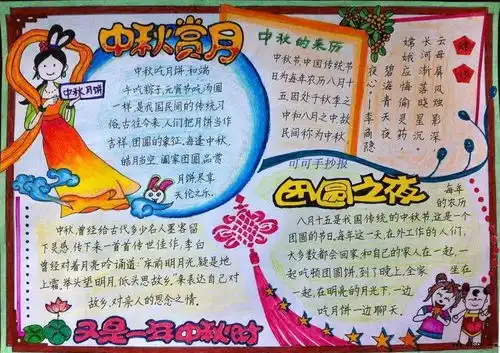 中秋赏月
中秋月饼
中秋吃月饼和端
午吃粽子,元宵节吃汤圆
一样是我国民间的传统习
俗,古往今来,人们把月饼当作
吉祥,团圆的象征,每逢中秋,
皓月当空,阖家团圆品赏
月饼尽享
天伦之乐。
中秋的来历
中秋节中国传统节
日为每年农历八月十
五,因处于秋季之
中和八月之中故
民间称为中秋
可可手抄报
嫦娥
云母屏风烛影深
长河渐落晓星沉
嫦娥应悔偷灵药
碧海青天夜夜心
—李商隐
团圆之夜
每年
的农历
八月十五是我国传统的中秋节,这是一个
团圆的节日,每年这一天,在外工作的人们,
大多数都会回家,和自己的家人在一起,一
起吃顿团圆饼,到了晚上,全家坐在
一起,在明亮的月光下,一边
吃月饼一边聊天。
中秋,曾经给古代多少名人墨客留
下灵感,传下来一首首传世佳作,李白
曾经对着月亮吟诵道:"床前明月光,疑是地
上霜,举头望明月,低头思故乡。"来表达自己对
故乡,对亲人的思念之情。
又是一年中秋时